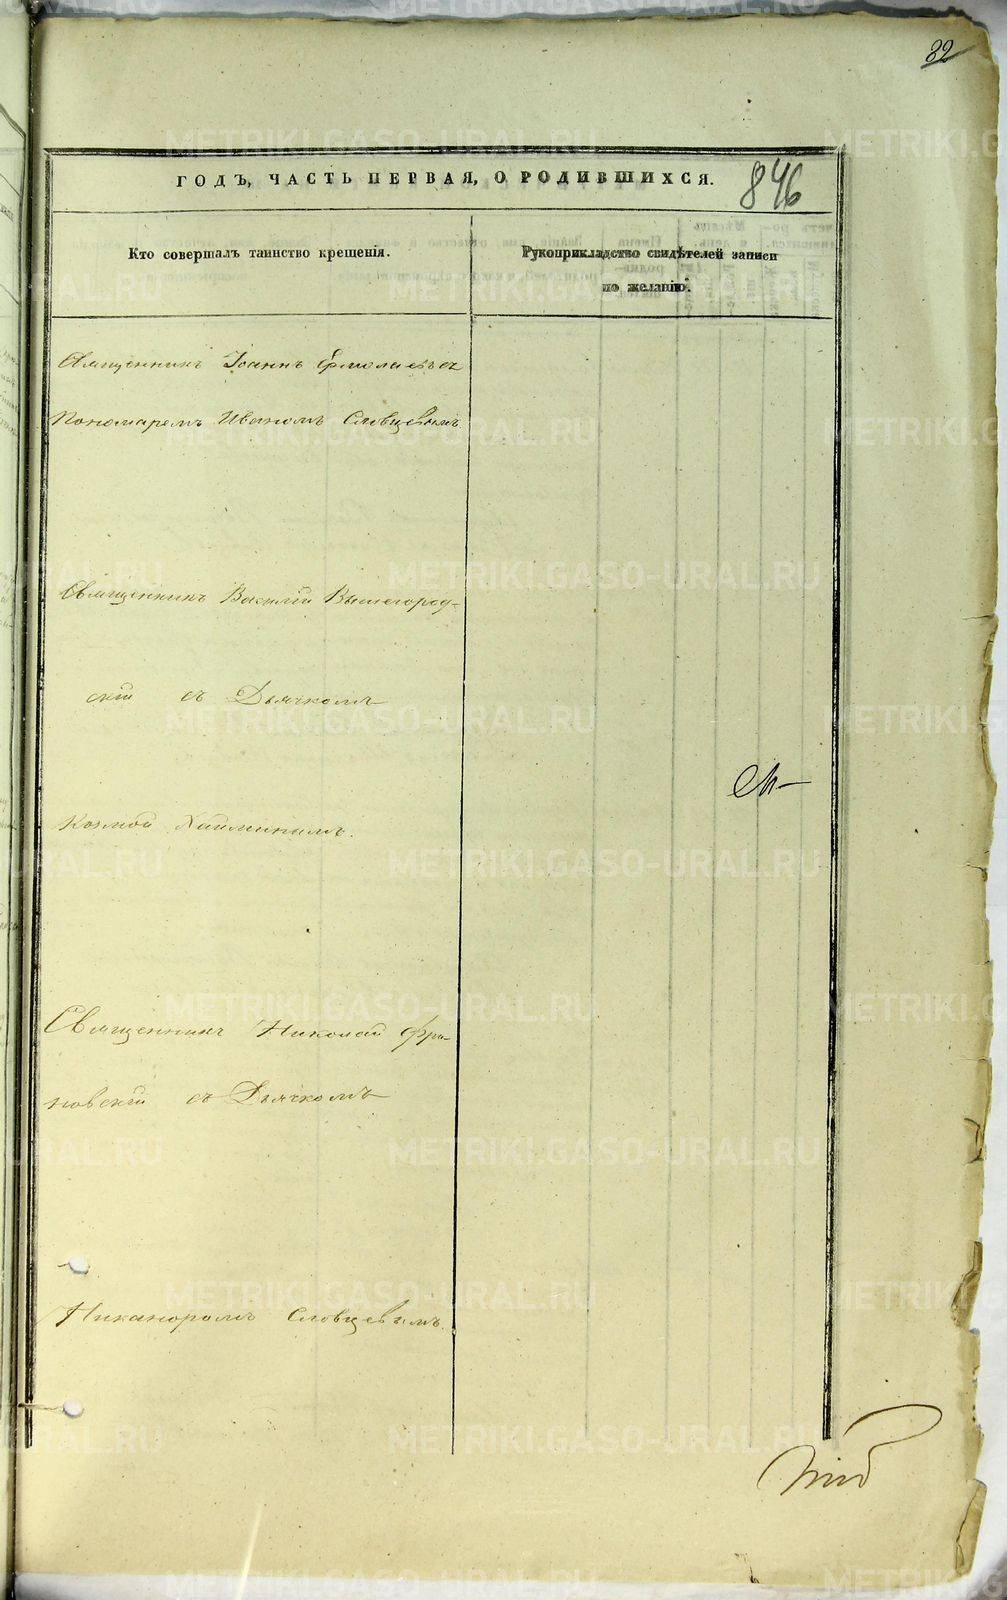 32
ГОДЪ, ЧАСТЬ ПЕРВАЯ, О РОДИВШИХСЯ.
846
Кто совершалъ таинство крещенія.
Рукоприкладство свидѣтелей записи
по желанію.
Священникъ Іоаннъ Ермолаевъ съ
Пономаремъ Иваномъ Словцевымъ
Священникъ Василій Вышегород-
скій съ Дьячкомъ
Козмой
Священникъ Николай
новскій съ Дьячкомъ
Никаноромъ Словцевымъ.
METRIKI.GASO-URAL.RU